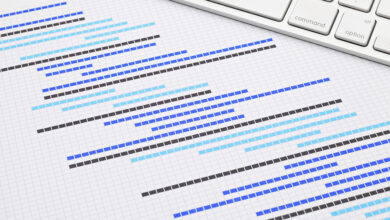 command
option